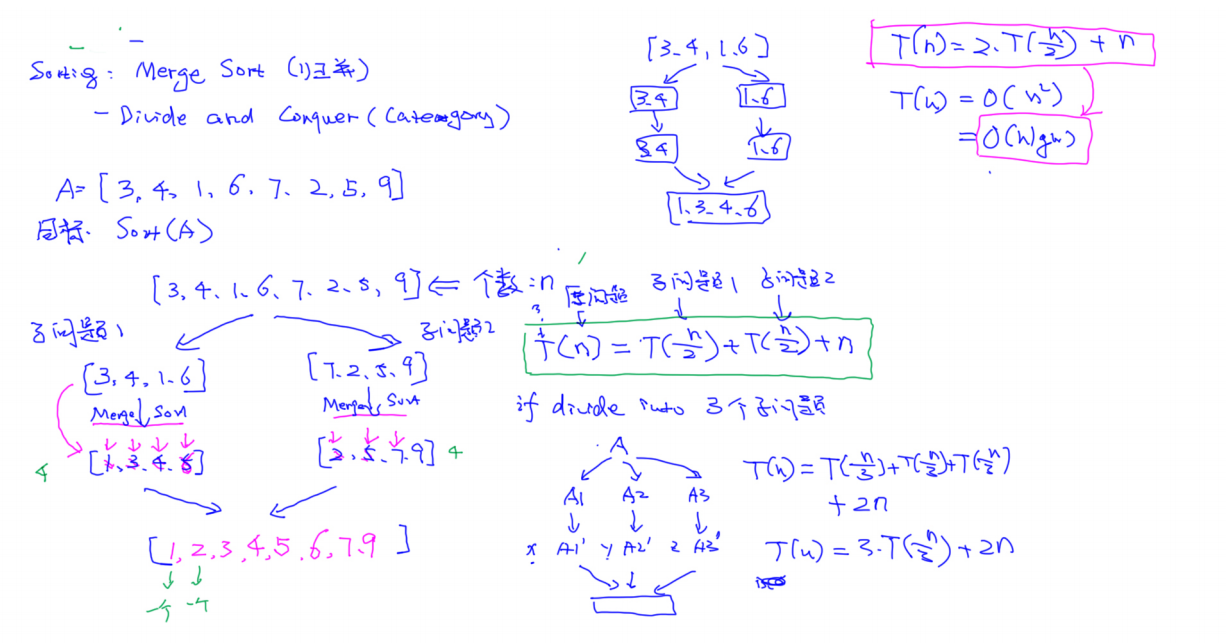 Sorting: Merge Sort (归并)
- Divide and Conquer (Category)
A= [3, 4, 1, 6, 7, 2, 5, 9]
目标. Sort(A)
[3, 4, 1, 6, 7, 2, 5, 9] ⇐ 个数:n
子问题1
子问题2
[3, 4, 1, 6]
[7, 2, 5, 9]
Merge Sort
Merge Sort
4
[1, 3, 4, 6]
[2, 5, 7, 9] 4
[1, 2, 3, 4, 5, 6, 7, 9]
一个 一个
[3, 4, 1, 6]
3, 4
1, 6
3, 4
1, 6
1, 3, 4, 6
T(n) = 2·T(n/2) + n
T(n) = O(n²)
= O(nlgn)
原问题 子问题1 子问题2
T(n) = T(n/2) + T(n/2) + n
if divide into 3个子问题
A
A1 A2 A3
x A1' y A2' z A3'
T(n) = T(n/3) + T(n/3) + T(n/3)
+ 2n
T(n) = 3·T(n/3) + 2n